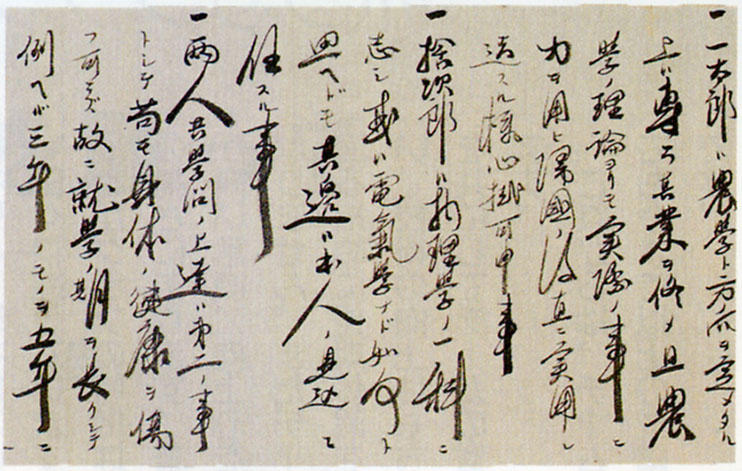 一 一太郎ハ農學ト方向ヲ定メタル
上ハ専ラ其業ヲ修メ且農
學ノ理論ヨリモ実際ノ事ニ
力ヲ用ヒ帰國ノ後直ニ実用ニ
適スル様心掛可申事
一 捨次郎ハ物理學ノ一科ニ
志シ或ハ電氣學ナド如何ト
思ヘドモ其邊ハ本人ノ見込ニ
任スル事
一 兩人共學問ノ上達ハ第二ノ事
トシテ苟モ身体ノ健康ヲ傷
フ可ラズ故ニ就學ノ期月ヲ長クシテ
例ヘバ三年ノモノヲ五年ニ